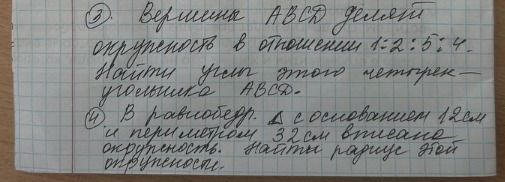 ③. Вершины ABCD делят
окружность в отношении 1:2:5:4.
Найти углы этого четырех-
угольника ABCD.
④ В равнобедр. Δ с основанием 12см
и периметром 32см вписана
окружность. Найти радиус этой
окружности.